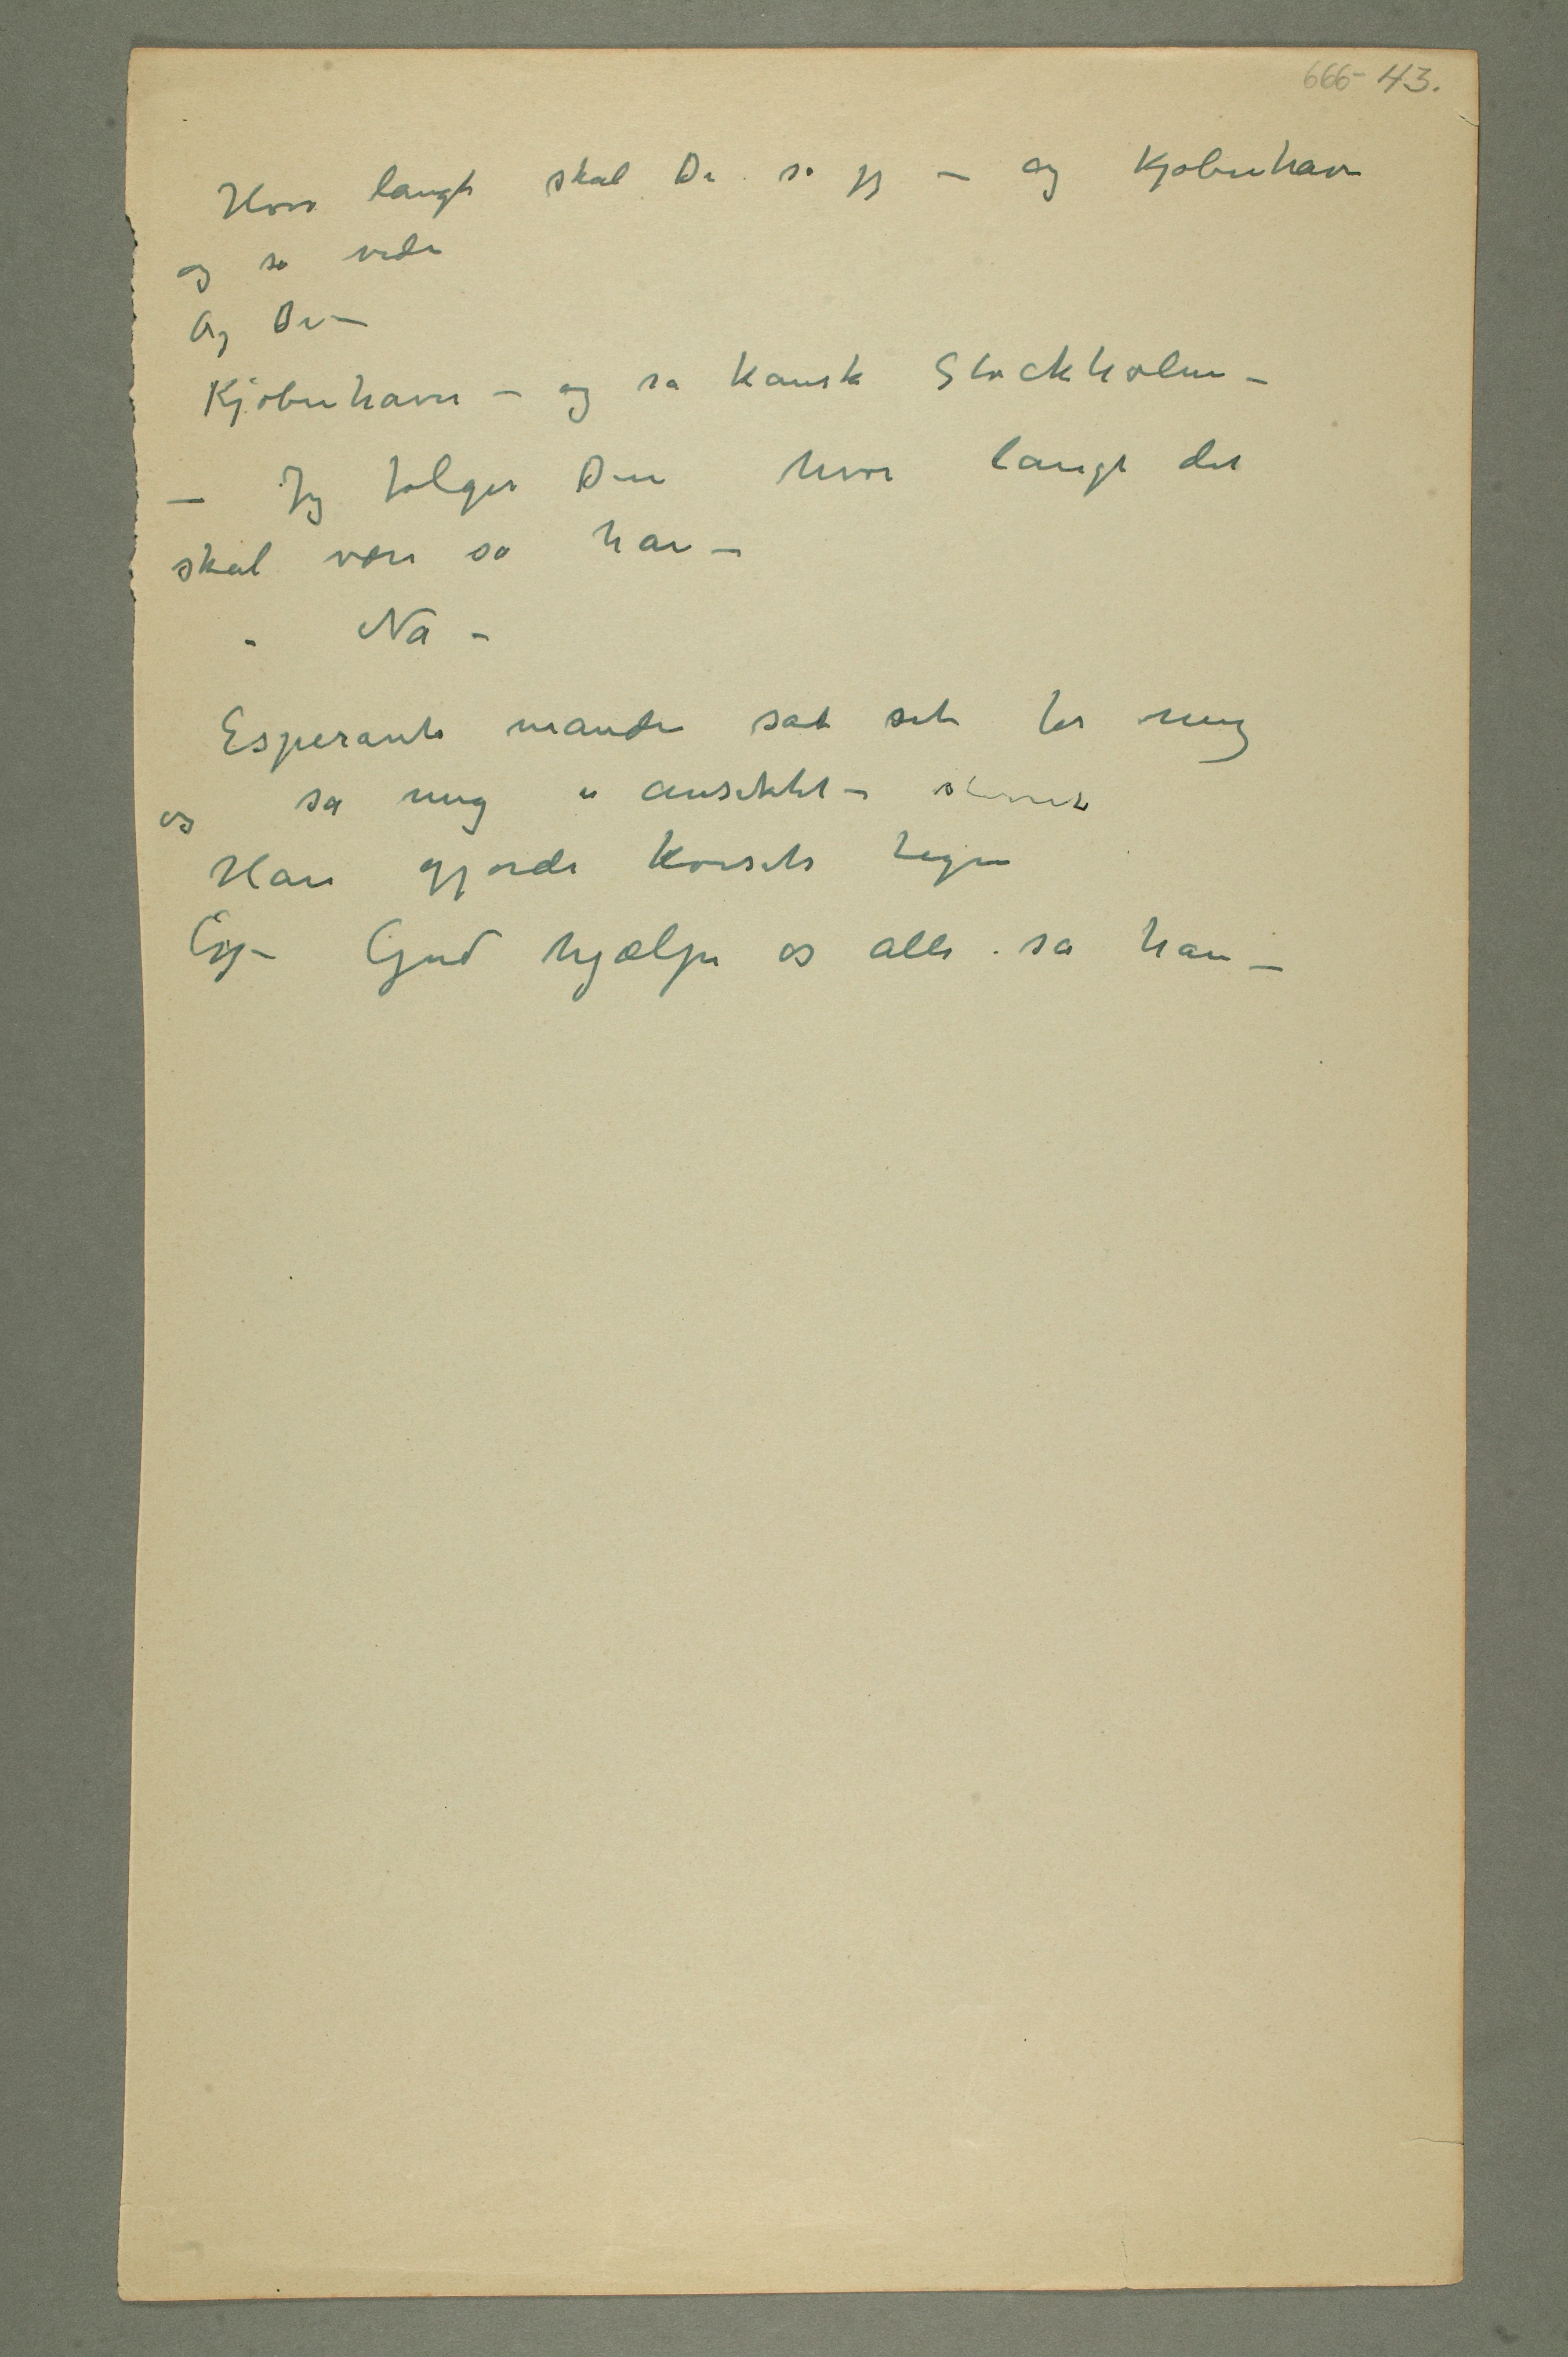 666-43.
Hvor langt skal De. sa jeg – og Kjøbenhavn
og så vider
Og De –
Kjøbenhavn – og så kanske Stockholm –
– Jeg følger Dem hvor langt det
skal være sa han –
– Nå –
Esperanto manden sad ret for mig
og så mig i ansiktet –
Han gjorde korsets tegn
Gud hjælpe os alle. sa han –